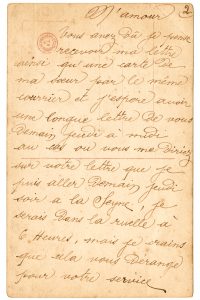 M'amour
2
Vous avez dû je pense
recevoir ma lettre
ainsi qu'une carte de
ma sœur par le même
courrier et j'espère avoir
une longue lettre de vous
Demain jeudi à midi
au cas ou vous me diriez
sur votre lettre que je
puis aller Demain jeudi
soir a la Seyne, je
serais dans la ruelle à
6 Heures, mais je crains
que cela vous Dérange
pour votre service